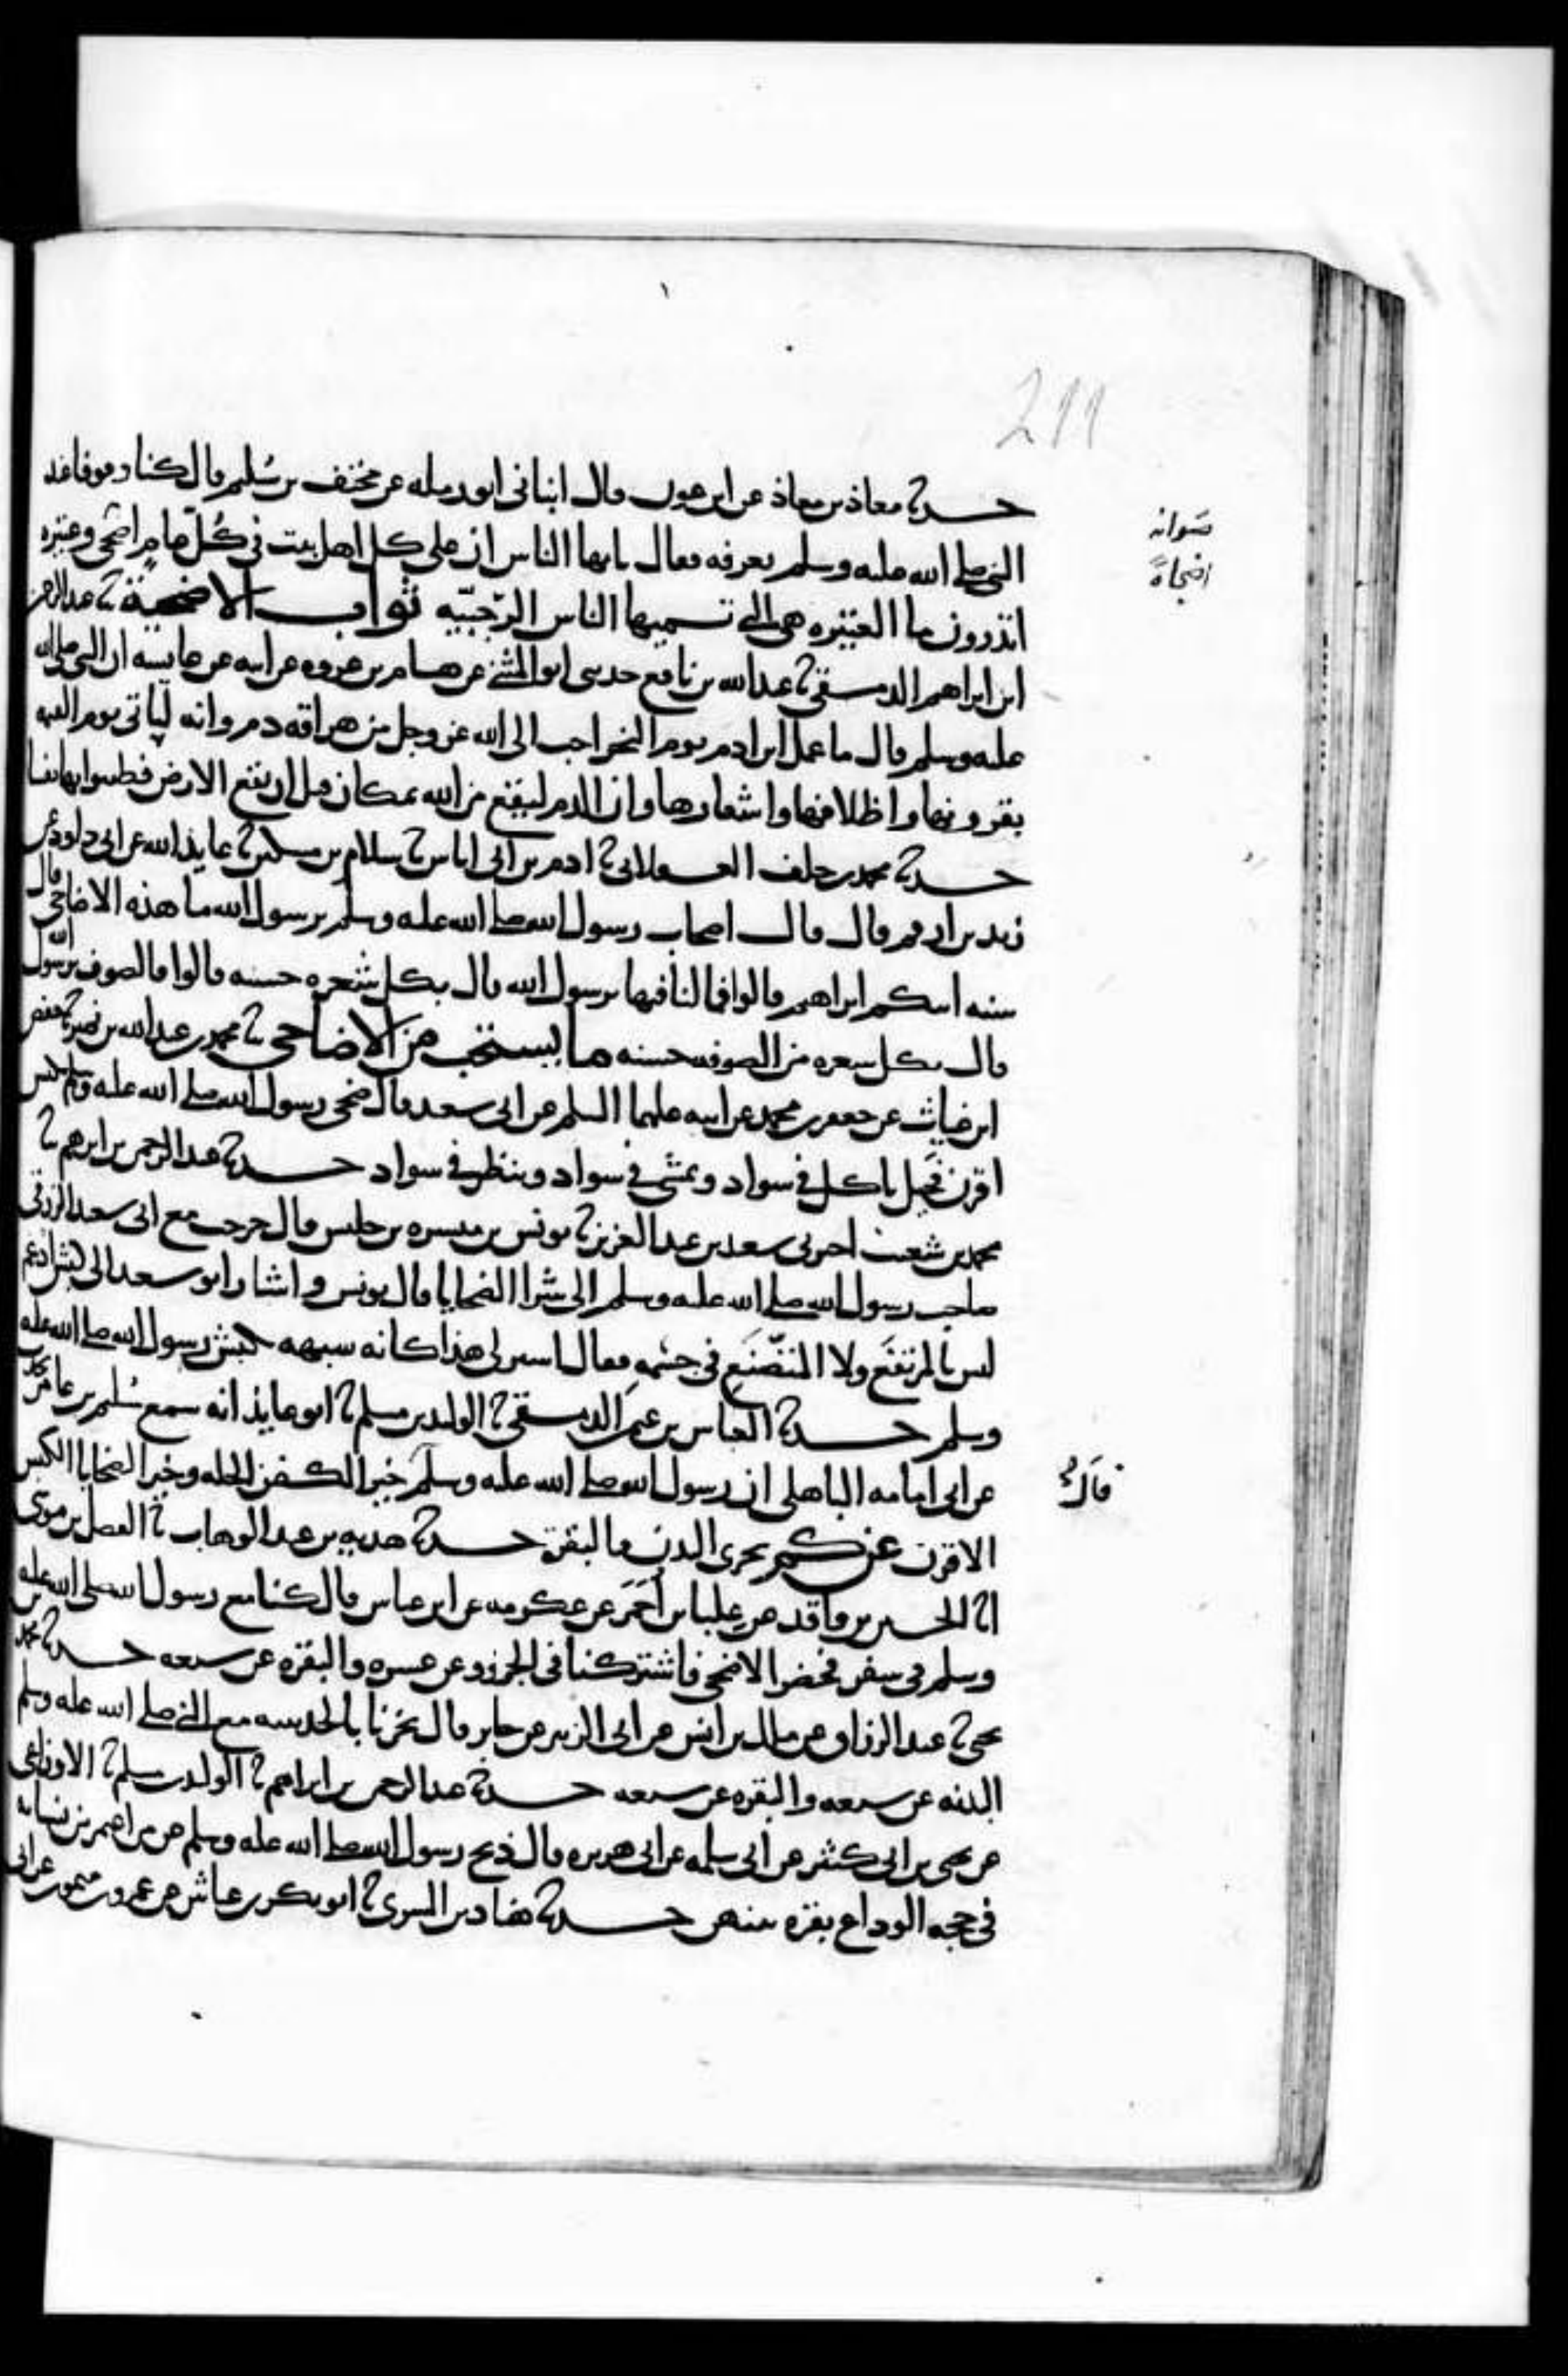 211
حدثنا معاذ بن معاذ عن ابن عون قال انبانى ابو رمله عن مخنف بن سُليم قال كنا وقوفا عند
صوابه
اضحاةً
النبي صلى الله عليه وسلم بعرفه فقال يايها الناس ان على كل اهل بيت في كُلّ عامٍ اضحى وعتيره
اتدرون ما العتيره هى التى تسميها الناس الرّجبيّه ثواب الاضحية نا عبدالرحمن
ابن ابراهيم الدمشقي نا عبدالله بن نافع حدثنى ابو المثنى عن هشام بن عروه عن ابيه عن عايشه ان النبي صلى الله
عليه وسلم قال ما عمل ابن ادم يوم النحر احب الى الله عز وجل من هراقه دم وانه لياتى يوم القيمه
بقرونها واظلافها واشعارها وان الدم ليقع من الله بمكان قبل ان يقع الارض فطيبوا بها نفسا
حدثنا محمد بن خلف العسقلانى نا ادم بن ابى اياس نا سلام بن مسكين نا عايذ الله عن ابى داود عن
زيد بن ارقم قال قال اصحاب رسول الله صلى الله عليه وسلم يرسول الله ما هذه الاضاحى قال
سنه ابيكم ابراهيم قالوا فما لنا فيها يرسول الله قال بكل شعره حسنه قالوا فالصوف يرسول الله
قال بكل شعره من الصوف حسنه ما يستحب من الاضاحى نا محمد بن عبدالله بن نمير نا حفص
ابن غياث عن جعفر بن محمد عن ابيه عليهما السلم عن ابى سعيد قال ضحى رسول الله صلى الله عليه وسلم بكبش
اقرن فحيل ياكل في سواد ويمشى في سواد وينظر في سواد حدثنا عبدالرحمن بن ابرهيم نا
محمد بن شعيب اخبرنى سعيد بن عبدالعزيز نا يونس بن ميسره بن حلبس قال خرجت مع ابى سعد الزرقى
صاحب رسول الله صلى الله عليه وسلم الى شرا الضحايا قال يونس واشار ابو سعد الى كبش ادغم
ليس بالمرتفع ولا المتضع في جسمه فقال اشتر لى هذا كانه شبهه بكبش رسول الله صلى الله عليه
وسلم حدثنا العباس بن عثمن الدمشقي نا الوليد بن مسلم نا ابو عايذ انه سمع سُليم بن عامر يحدث
عن ابى امامه الباهلى ان رسول الله صلى الله عليه وسلم خير الكفن الحله وخير الضحايا الكبش
قال
الاقرن عن كم يجزى البدن والبقرة حدثنا هديه بن عبدالوهاب نا الفضل بن موسى
انا الحسين بن واقد عن علبا بن احمر عن عكرمه عن ابن عباس قال كنا مع رسول الله صلى الله عليه
وسلم فى سفر فحضر الاضحى فاشتركنا فى الجزور عن عشره والبقره عن سبعه حدثنا محمد بن
يحيى نا عبدالرزاق عن مالك بن انس عن ابى الزبير عن جابر قال نحرنا بالحديبيه مع النبي صلى الله عليه وسلم
البدنه عن سبعه والبقره عن سبعه حدثنا عبدالرحمن بن ابراهيم نا الوليد بن مسلم نا الاوزاعى
عن يحيى بن ابى كثير عن ابى سلمه عن ابى هريره قال ذبح رسول الله صلى الله عليه وسلم عن من اعتمر من نسايه
في حجه الوداع بقره بينهن حدثنا هناد بن السرى نا ابو بكر بن عياش عن عمرو بن ميمون عن ابى